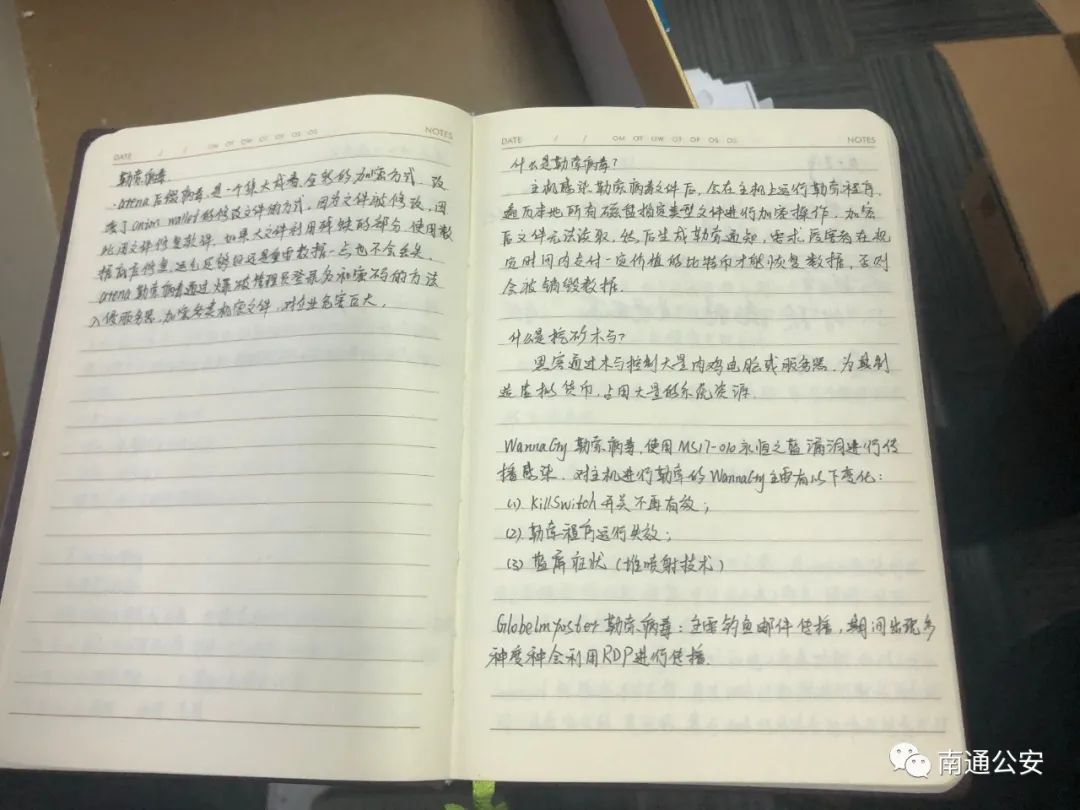 DATE / / OM OT OW OT OF OS OS NOTES
勒索病毒
.arena后缀病毒,是一个集大成者,全新的加密方式,改
变了onion wallet的修改文件的方式,因为文件被修改,因
此用文件修复软件,如果大文件利用残缺的部分,使用数
据库修复,运气足够的还是重要数据一点也不会丢失。
arena勒索病毒通过爆破管理员登录名和密码的方法
入侵服务器,加密各类机密文件,对企业危害巨大。
DATE / / OM OT OW OT OF OS OS NOTES
什么是勒索病毒?
主机感染勒索病毒文件后,会在主机上运行勒索程序,
遍历本地所有磁盘指定类型文件进行加密操作,加密
后文件无法读取,然后生成勒索通知,要求受害者在规
定时间内支付一定价值的比特币才能恢复数据,否则
会被销毁数据.
什么是挖矿木马?
黑客通过木马控制大量肉鸡电脑或服务器,为其制
造虚拟货币,占用大量的系统资源.
WannaCry勒索病毒,使用MS17-010永恒之蓝漏洞进行传
播感染.对主机进行勒索的WannaCry主要有以下变化:
(1) KillSwitch开关不再有效;
(2) 勒索程序运行失效;
(3) 蓝屏症状(堆喷射技术)
GlobeImposter勒索病毒:主要钓鱼邮件传播,期间出现多
种变种会利用RDP进行传播.
南通公安